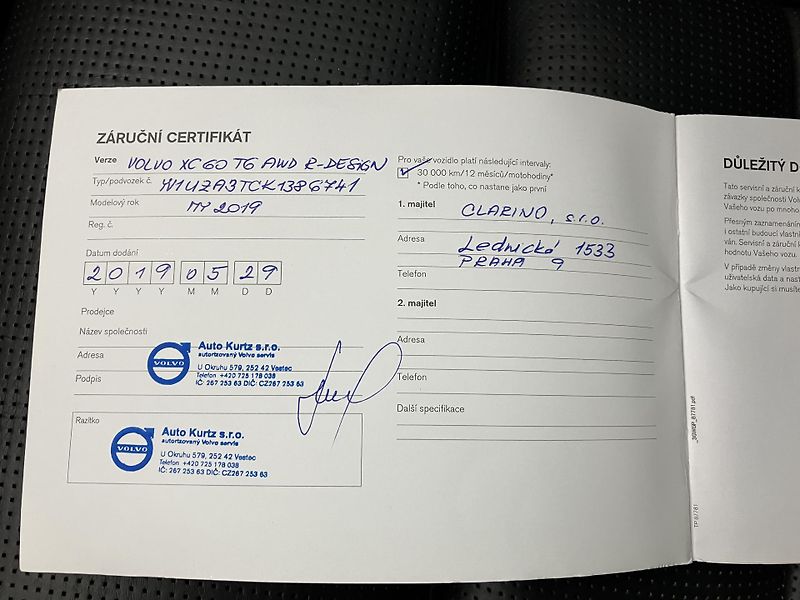 ZÁRUČNÍ CERTIFIKÁT
Verze VOLVO XC60 T6 AWD R-DESIGN
Typ/podvozek č. YV1UZA3TCK1386741
Modelový rok MY 2019
Reg. č.
Datum dodání
2 0 1 9 0 5 2 9
Y Y Y Y M M D D
Prodejce
Název společnosti
Adresa
Podpis
VOLVO
Auto Kurtz s.r.o.
autorizovaný Volvo servis
U Okruhu 579, 252 42 Vestec
Telefon +420 725 178 038
IČ: 267 253 63 DIČ: CZ267 253 63
Razítko
VOLVO
Auto Kurtz s.r.o.
autorizovaný Volvo servis
U Okruhu 579, 252 42 Vestec
Telefon +420 725 178 038
IČ: 267 253 63 DIČ: CZ267 253 63
Pro vaše vozidlo platí následující intervaly:
30 000 km/12 měsíců/motohodiny*
* Podle toho, co nastane jako první
1. majitel CLARINO, s.r.o.
Adresa Lednická 1533
PRAHA 9
Telefon
2. majitel
Adresa
Telefon
Další specifikace
_3GWGP_87781.pdf
TP 87781
DŮLEŽITÝ D
Tato servisní a záruční k
závazky společnosti Vol
Vašeho vozu po mnoho
Přesným zaznamenáním
i ostatní budoucí vlastní
ván. Servisní a záruční k
hodnotu Vašeho vozu.
V případě změny vlastní
uživatelská data a nasta
Jako kupující si musíte